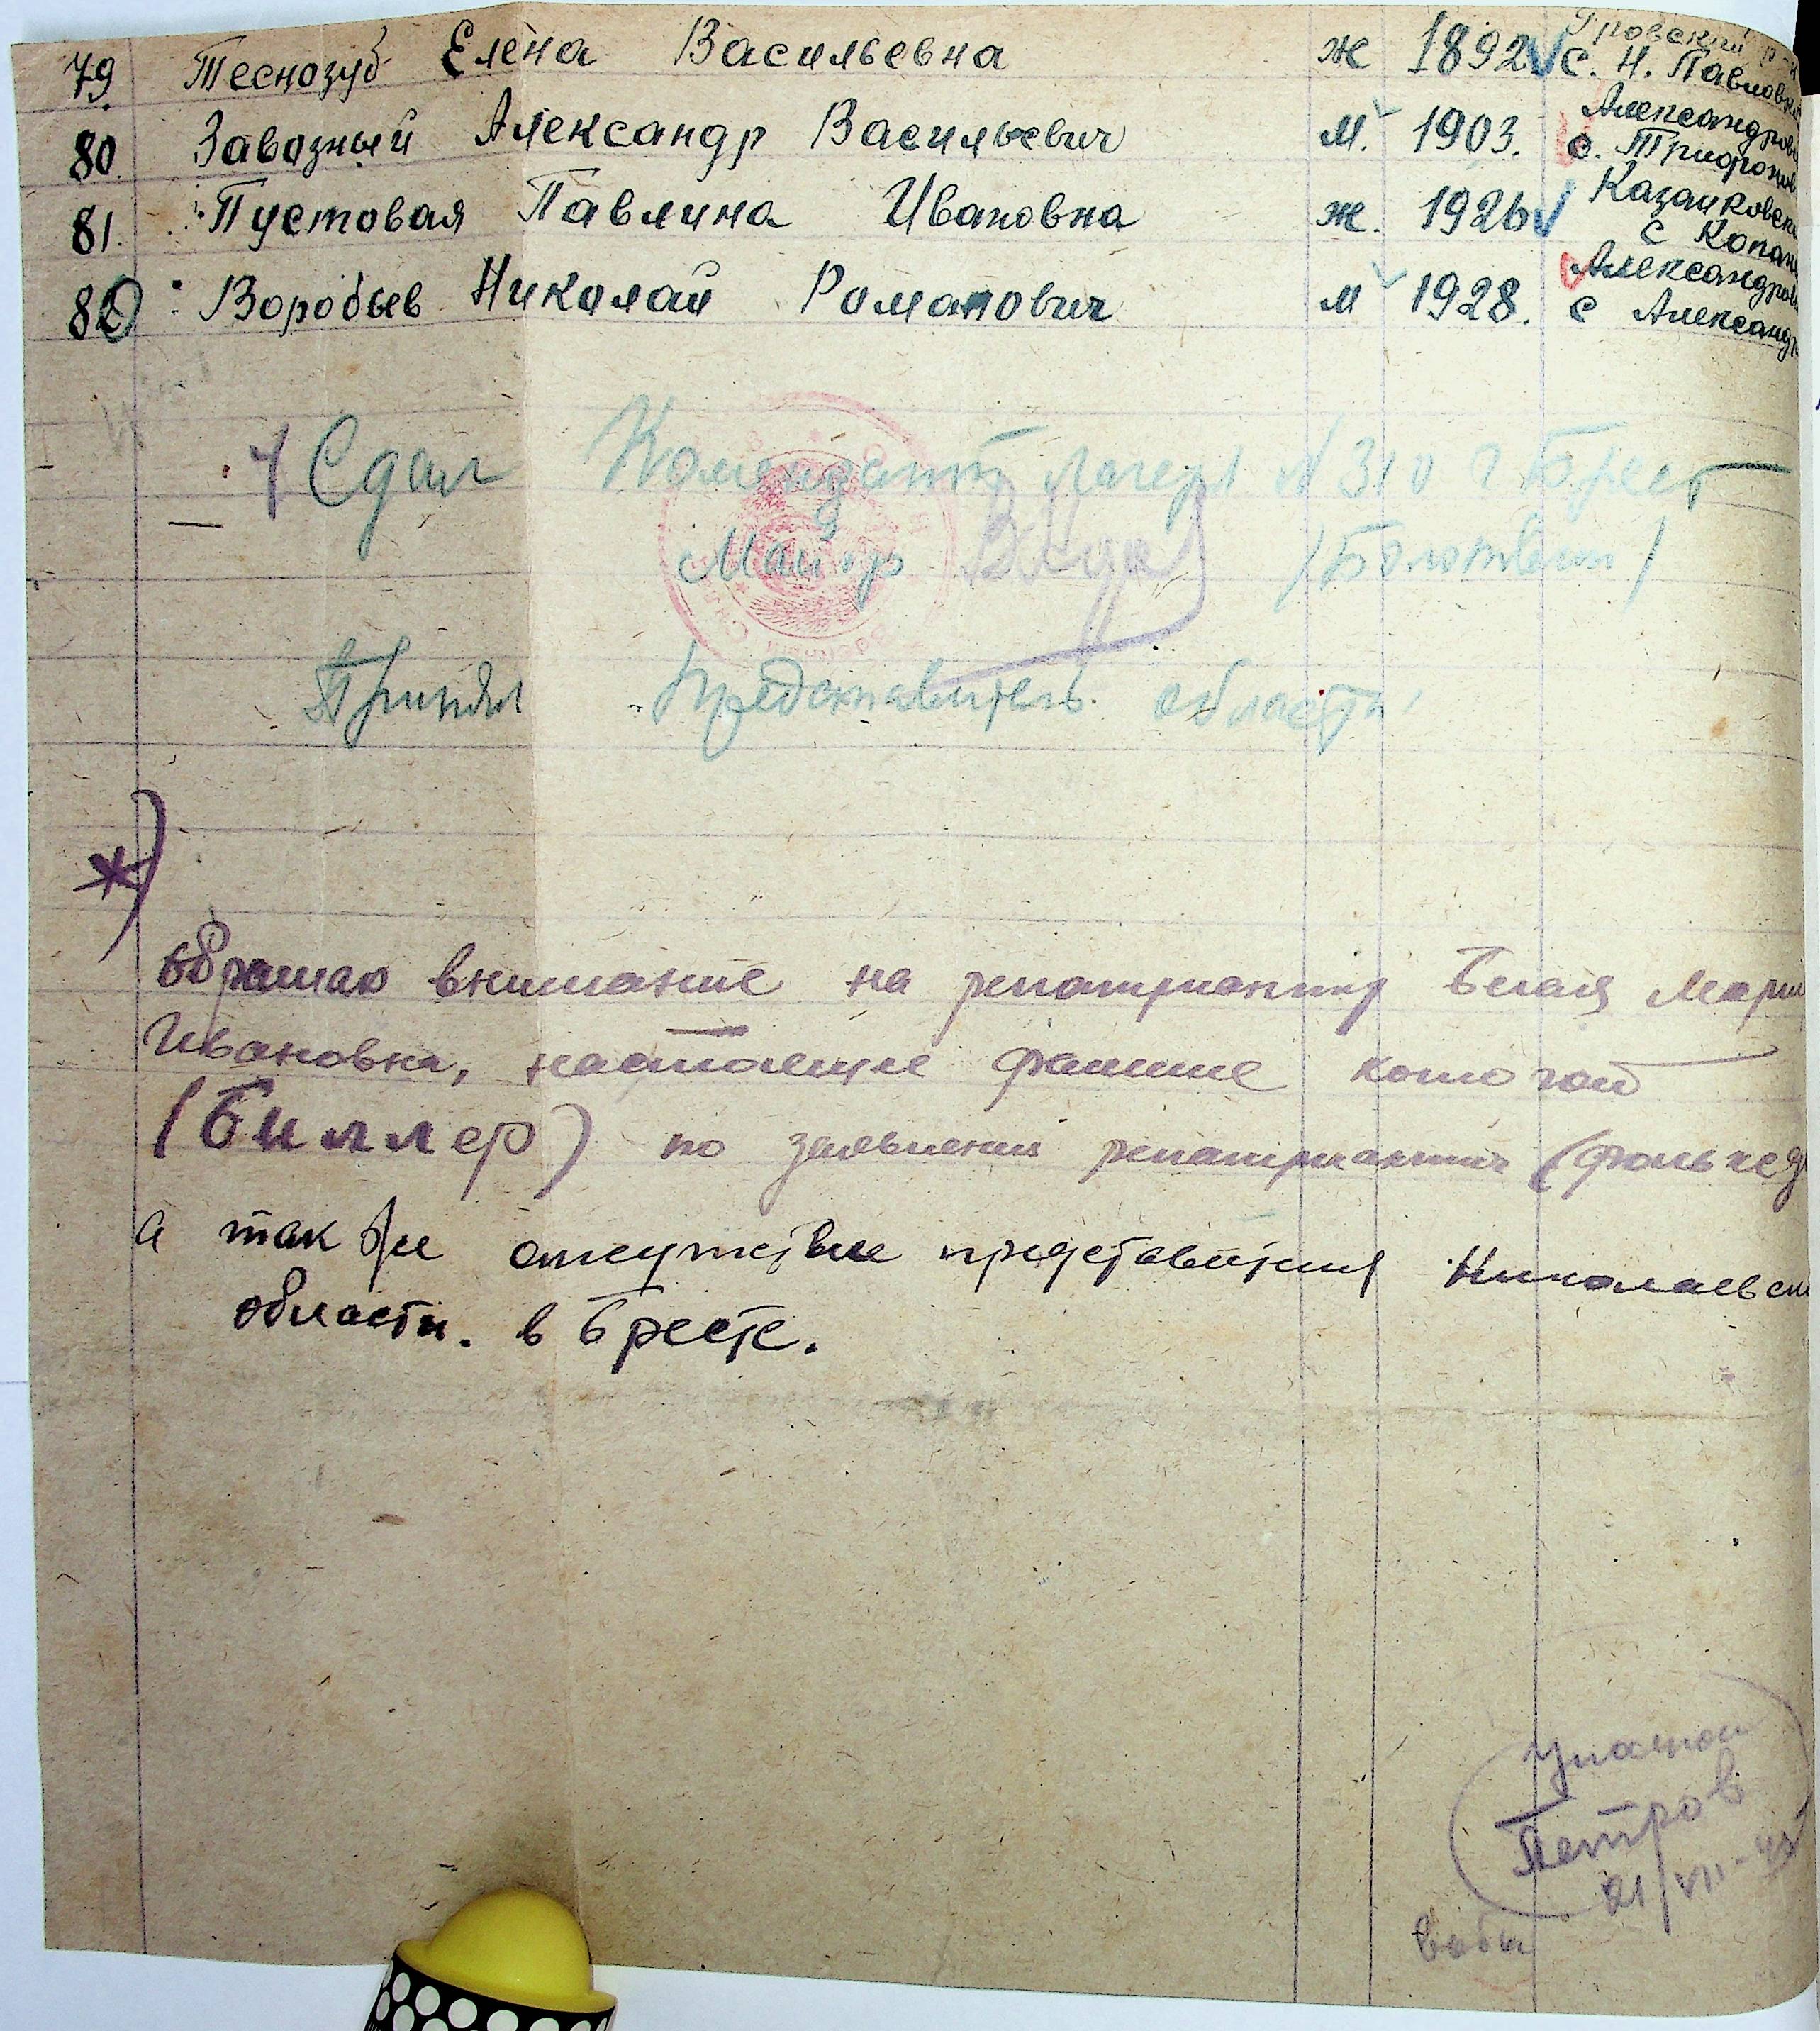 79. Теснозуб Елена Васильевна ж 1892 √ с. Н. Павловка
80. Завозный Александр Васильевич м. 1903. Александров
с. Трифонов
81. Пустовая Павлина Ивановна ж. 1926 √ Казанковск
с Копан
82 Воробьев Николай Романович м 1928. Александров
с Александр
Сдал Комендант лагеря N 310 г Брест
Майор
Принял Представитель области
*)
обращаю внимание на репатриантку Белая Мария
Ивановна, настоящие фамилие которой
(Биллер) по заявлению репатриантки (фольксд
а так же отсутствие представителя Николаевск
области. в Бресте.
Петров
21/VII-45